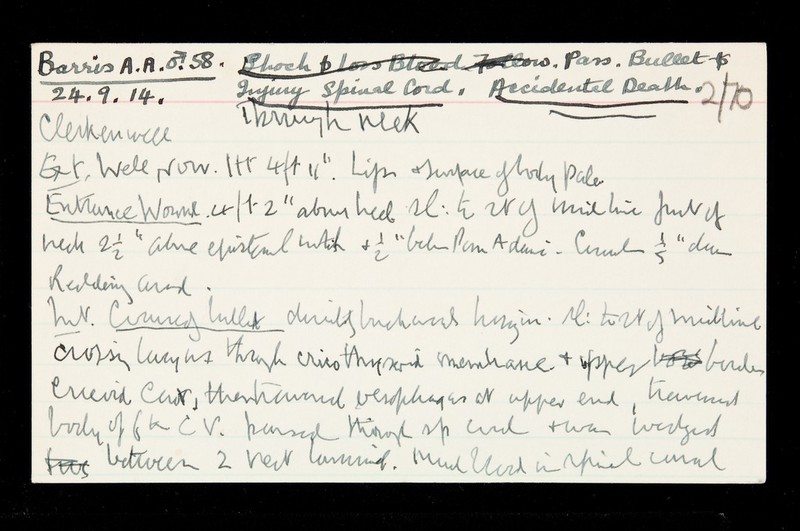 Barris A.A. ♂ 58. Shock & loss Blood follow. Pass. Bullet &
24.9.14. Injury Spinal Cord. Accidental Death. 2/70
Through neck
Clerkenwell
Ext. Well, Nour. Ht 4ft 11". Lips & surface of body pale
Entrance Wound. 4ft 2" above heel sl: to rt of midline front of
neck 2 1/2" above episternal notch & 1/2" below Pom Adami. Circular 1/5" diam
Reddening around.
Int. Course of bullet directly backwards horizon. sl: to rt of midline
crossing larynx through crico thyroid membrane & upper border
Cricoid Cart, then traversed oesophagus at upper end, traversed
body of 6th C.V. passed through sp cord & was wedged
between 2 vert laminae. Much blood in spinal canal